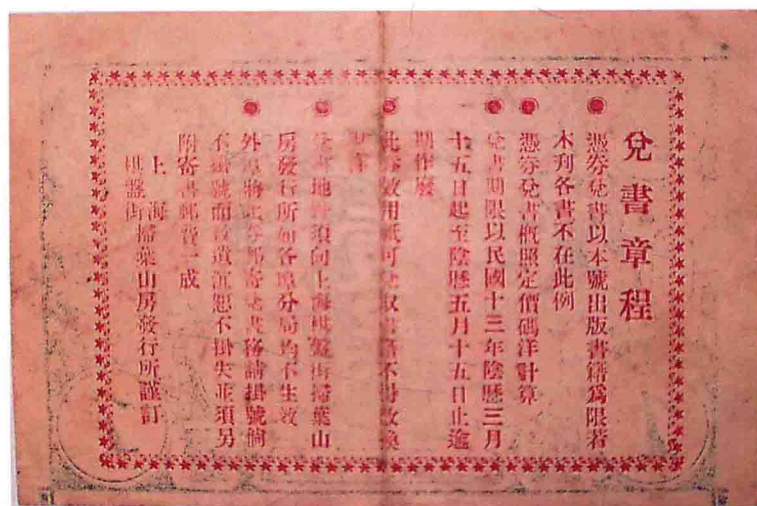 兌書章程
●憑券兌書以本號出版書籍爲限若
木刻各書不在此例
●憑券兌書概照定價碼洋計算
●兌書期限以民國十三年陰歷三月
十五日起至陰歷五月十五日止逾
期作廢
●此券效用祇可兌取書籍不得改換
●兌書地址須向上海棋盤街掃葉山
房發行所如各埠分局均不生效
●外埠將此券郵寄兌書務請掛號倘
不掛號而致遺沉恕不掛失並須另
附寄書郵費二成
上海
棋盤街掃葉山房發行所謹訂